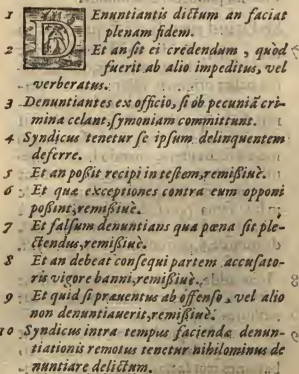 1 DEnuntiantis dictum an faciat
plenam fidem.
2 Et an sit ei credendum, quod
fuerit ab alio impeditus, vel
verberatus.
3 Denuntiantes ex officio, si ob pecuniã cri-
mina celant, symoniam committunt.
4 Syndicus tenetur se ipsum delinquentem
deferre.
5 Et an poßit recipi in testem, remißiuè.
6 Et quæ exceptiones contra eum opponi
poßint, remißiuè.
7 Et falsum denuntians qua pœna sit ple-
ctendus, remißiuè.
8 Et an debeat consequi partem accusato-
ris vigore banni, remißiuè.
9 Et quid si præuentus ab offenso, vel alio
non denuntiauerit, remißiuè.
10 Syndicus intra tempus faciendæ denun-
tiationis remotus tenetur nihilominus de
nuntiare delictum.